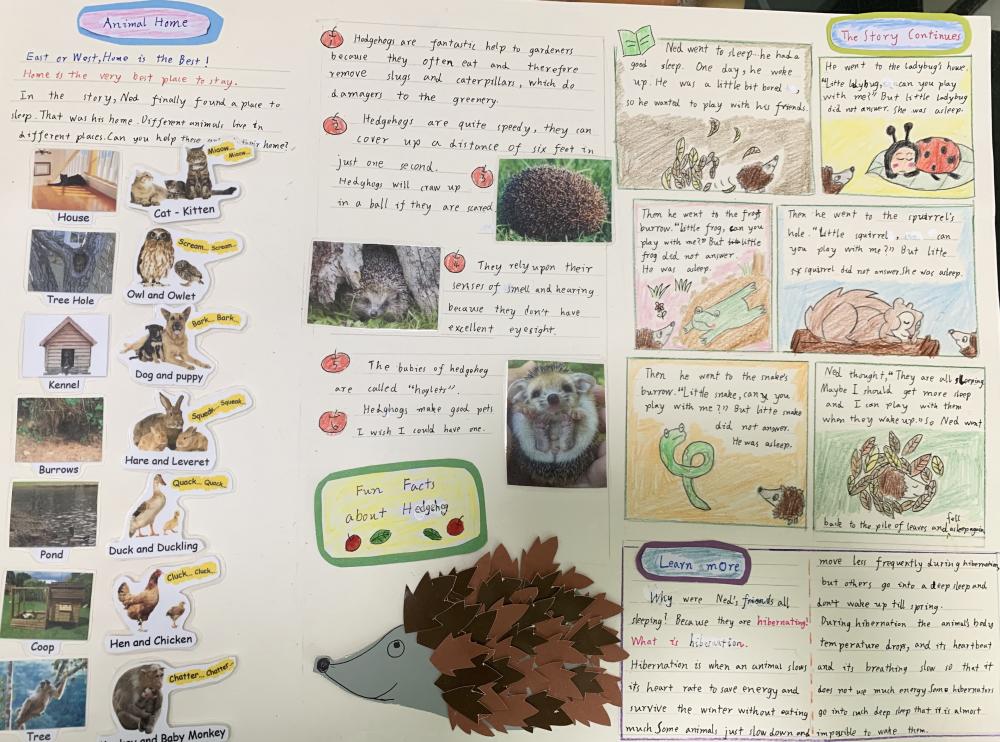 Animal Home
East or West, Home is the Best!
Home is the very best place to stay.
In the story, Ned finally found a place to
sleep. That was his home. Different animals live in
different places. Can you help these their home?
House
Miaow... Miaow...
Cat - Kitten
Tree Hole
Scream... Scream...
Owl and Owlet
Kennel
Bark... Bark...
Dog and puppy
Burrows
Squeak... Squeak...
Hare and Leveret
Pond
Quack... Quack...
Duck and Duckling
Coop
Cluck... Cluck...
Hen and Chicken
Tree
Chatter... Chatter...
and Baby Monkey
1
Hedgehogs are fantastic help to gardeners
because they often eat and therefore
remove slugs and caterpillars, which do
damagers to the greenery.
2
Hedgehogs are quite speedy, they can
cover up a distance of six feet in
just one second.
3
Hedgyhogs will craw up
in a ball if they are scared
4
They rely upon their
senses of smell and hearing
because they don't have
excellent eyesight.
5
The babies of hedgehog
are called "hoglets".
6
Hedgyhogs make good pets
I wish I could have one.
Fun Facts
about Hedgehog
The Story Continues
Ned went to sleep. he had a
good sleep. One day, he woke
up. He was a little bit bored,
so he wanted to play with his friends.
He went to the ladybug's house.
"Little ladybug, can you play
with me?" But little ladybug
did not answer. She was asleep.
Then he went to the frog
burrow. "Little frog, can you
play with me?" But little
frog did not answer.
He was asleep.
Then he went to the squirrel's
hole. "Little squirrel, can
you play with me?" But little
squirrel did not answer. She was asleep.
Then he went to the snake's
burrow. "Little snake, can you
play with me?" But little snake
did not answer.
He was asleep.
Ned thought, "They are all sleeping.
Maybe I should get more sleep
and I can play with them
when they wake up." So Ned went
back to the pile of leaves and fell asleep again.
Learn more
Why were Ned's friends all
sleeping? Because they are hibernating!
What is hibernation.
Hibernation is when an animal slows
its heart rate to save energy and
survive the winter without eating
much. Some animals just slow down and
move less frequently during hibernation,
but others go into a deep sleep and
don't wake up till spring.
During hibernation the animal's body
temperature drops, and its heartbeat
and its breathing slow so that it
does not use much energy. Some hibernators
go into such deep sleep that it is almost
impossible to wake them.